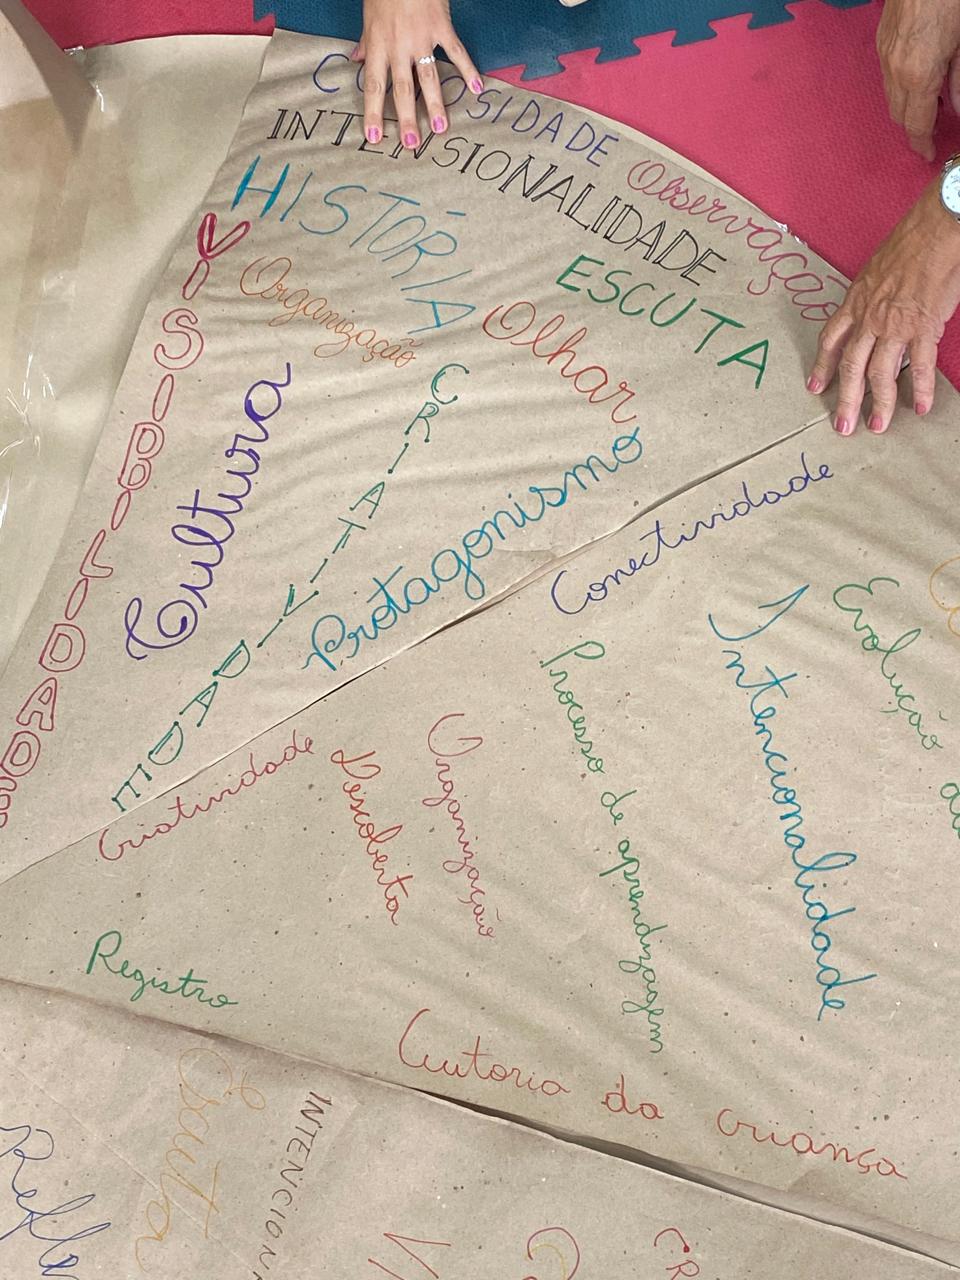 CURIOSIDADE
INTENSIONALIDADE
Observação
HISTÓRIA
ESCUTA
VISIBILIDADE
Organização
Olhar
Cultura
CRIATIVIDADE
Protagonismo
Conectividade
Intencionalidade
Evolução
Processo de aprendizagem
Criatividade
Descoberta
Organização
Registro
Autoria da criança
Escuta
INTENCION
Refle
VI
CR